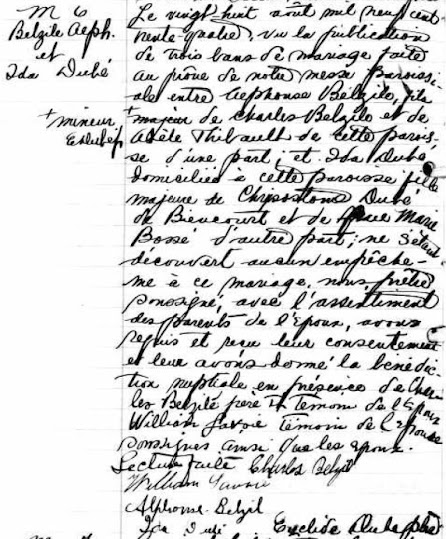 M 6
Belzile Alph.
et
Ida Dubé
+ mineur
Le vingt huit août mil neuf cent
trente-quatre, vu la publication
de trois bans de mariage faite
au prône de notre messe parois-
siale entre Alphonse Belzile, fils
+ majeur de Charles Belzile et de
Adèle Thibault de cette parois-
se d'une part; et Ida Dubé,
domiciliée à cette paroisse fille
majeure de Chrysostome Dubé
de Biencourt et de Marie
Bossé d'autre part; ne s'étant
découvert aucun empêche-
me à ce mariage, nous prêtre
soussigné, avec l'assentiment
des parents de l'Epoux, avons
requis et reçu leur consentement
et leur avons donné la bénédic-
tion nuptiale en présence de Char
les Belzile père et témoin de l'Epoux
William Lavoie témoin de l'epouse
soussignés ainsi que les epoux.
Lecture faite Charles Belzil
William Lavoie
Alphonse Belzil
Ida Dubé